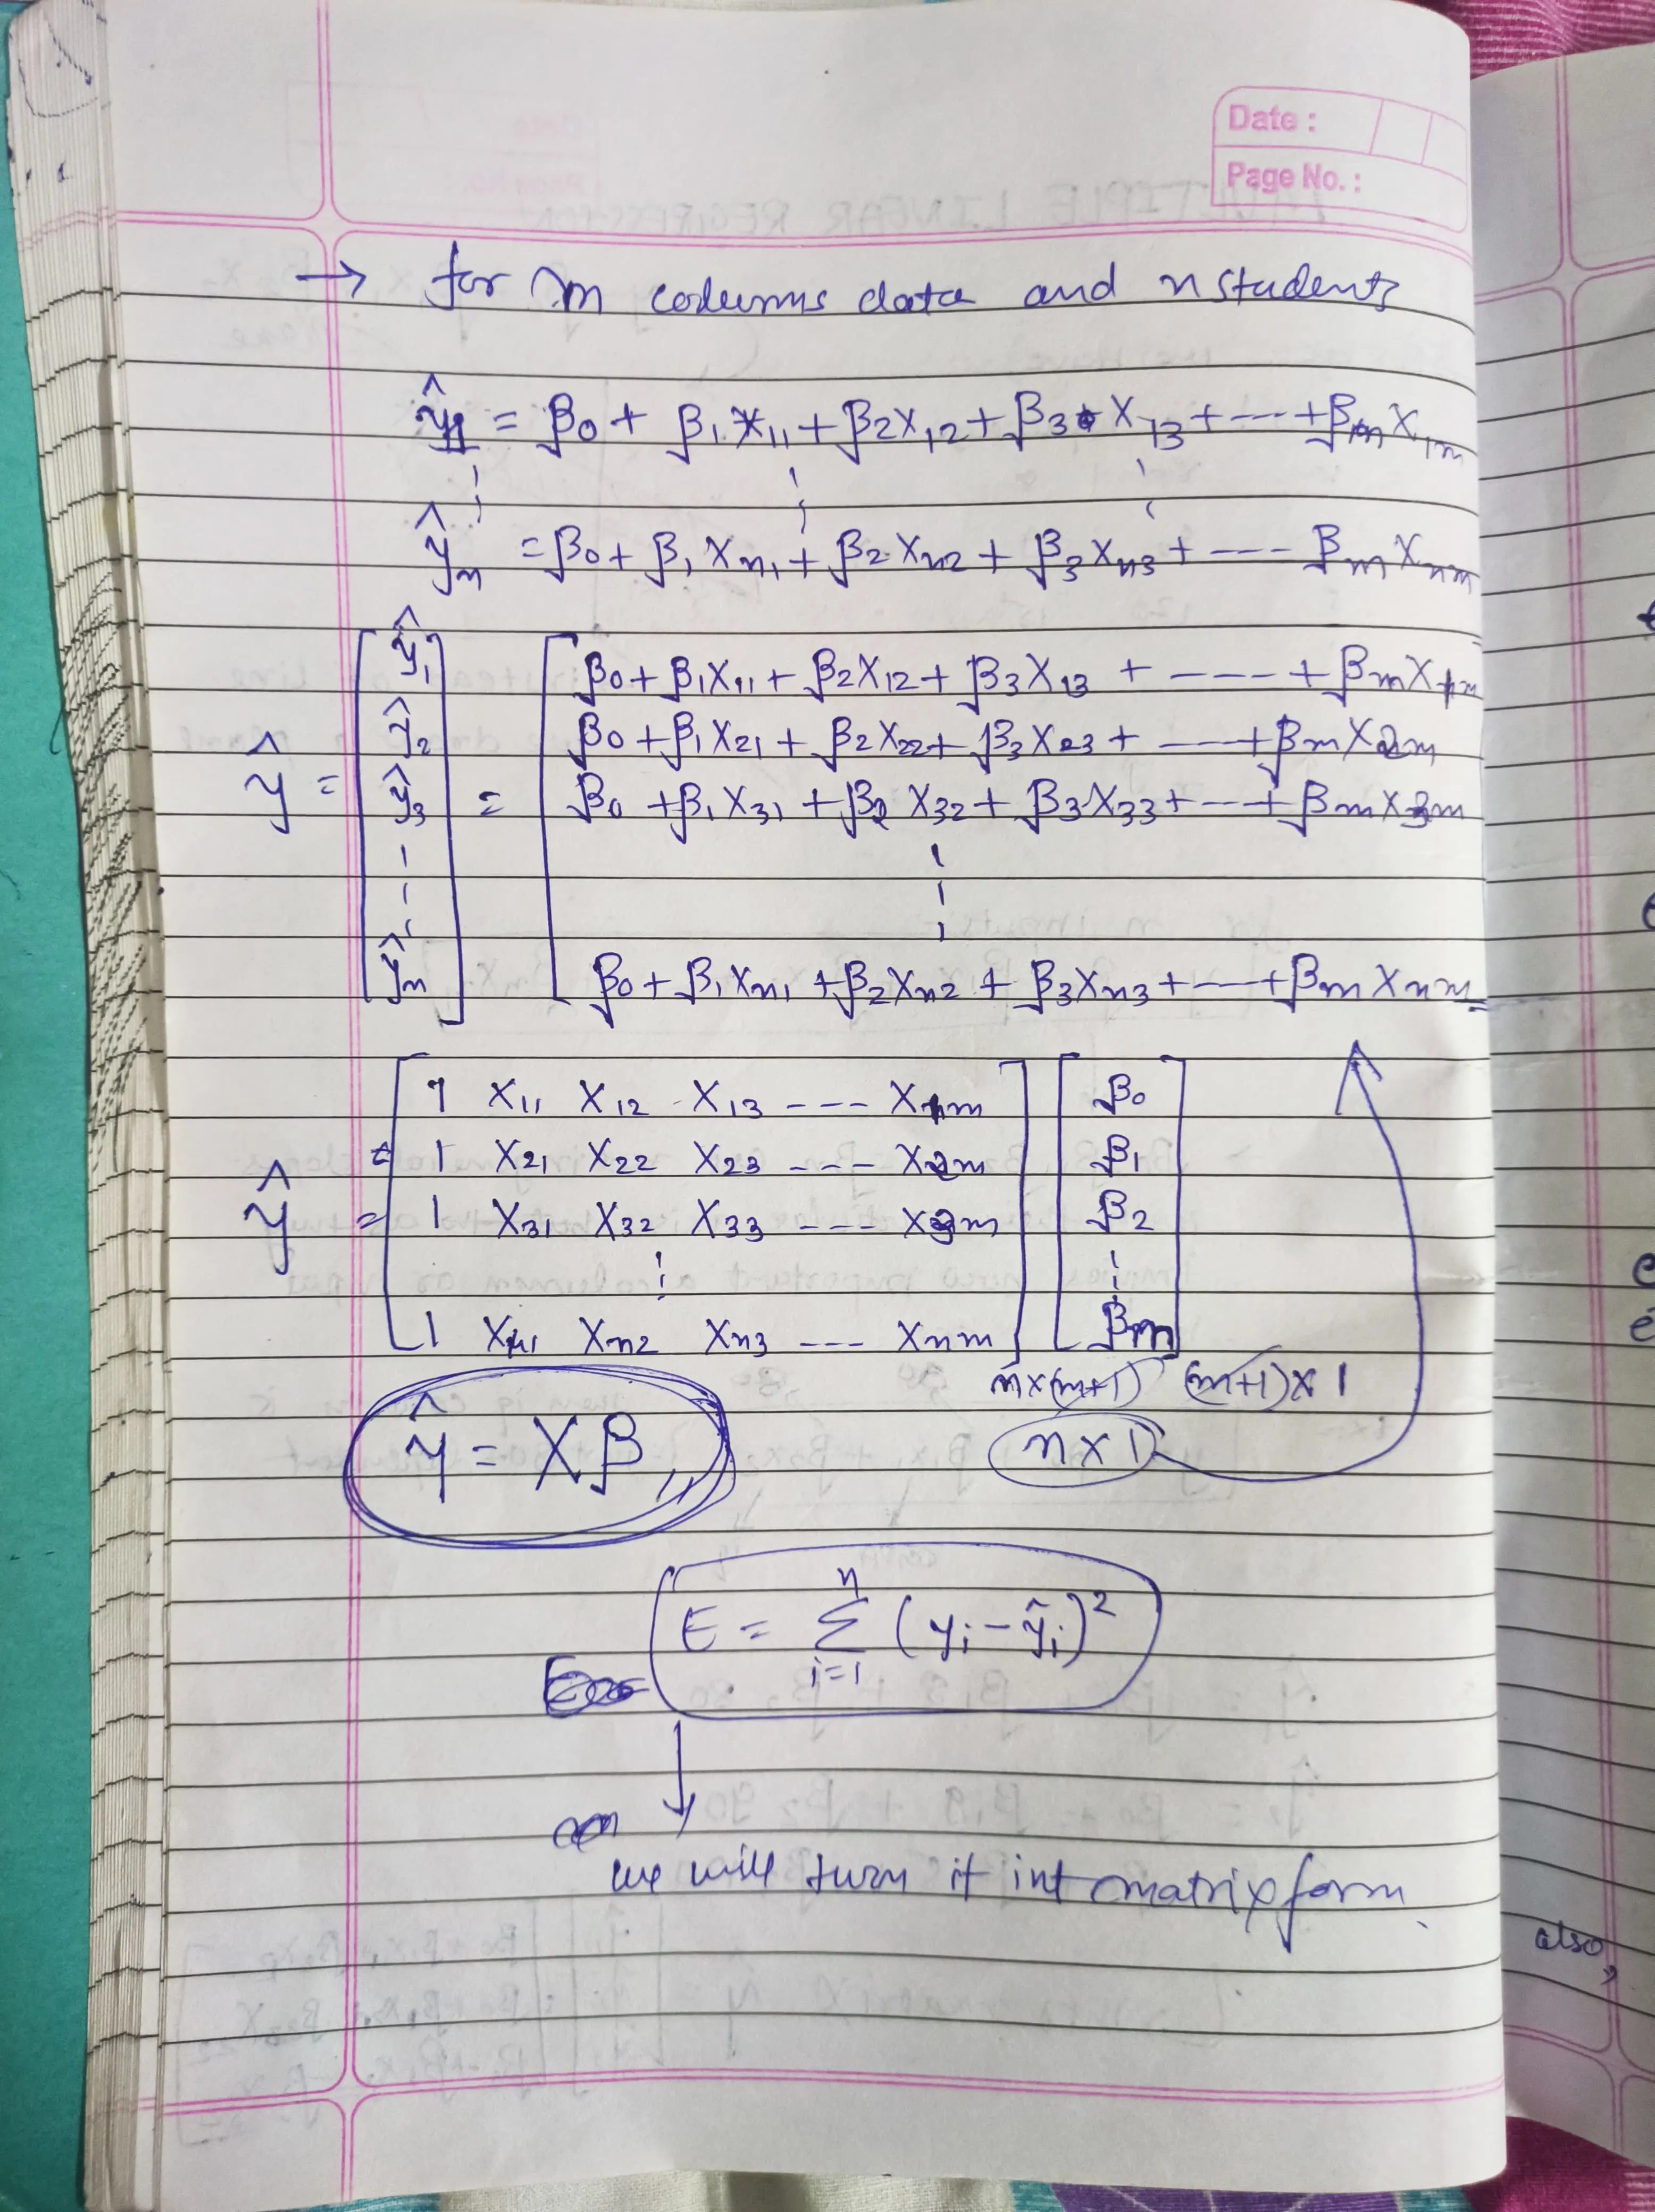 Date :
Page No. :
→ for m columns data and n students
ŷ1 = β0 + β1 X11 + β2X12 + β3 X13 + --- + βm X1m
ŷn = β0 + β1 Xn1 + β2 Xn2 + β3 Xn3 + --- βm Xnm
ŷ = [ŷ1 ŷ2 ŷ3 ŷn] =
β0 + β1X11 + β2X12 + β3X13 + ---- + βmX1m
β0 + β1X21 + β2X22 + β3X23 + ---- + βmX2m
β0 + β1X31 + β2 X32 + β3X33 + --- + βmX3m
β0 + β1Xn1 + β2Xn2 + β3Xn3 + --- + βm Xnm
ŷ =
1 X11 X12 X13 --- X1m β0
= 1 X21 X22 X23 --- X2m β1
1 X31 X32 X33 --- X3m β2
1 Xn1 Xn2 Xn3 --- Xnm βm
n×(m+1) (m+1)×1
ŷ = Xβ
n×1
E = Σ i=1 n (yi - ŷi)²
we will turn it int matrix form
also,